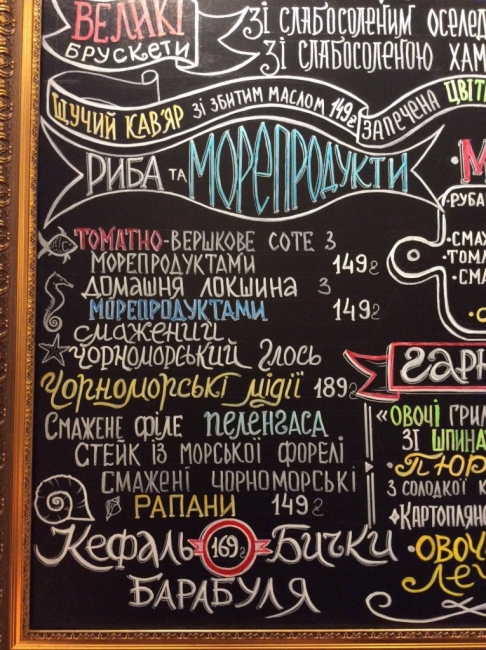 ВЕЛИКІ
БРУСКЕТИ
ЗІ СЛАБОСОЛЕНИМ
ЗІ СЛАБОСОЛЕНОЮ
ЩУЧИЙ КАВ'ЯР ЗІ ЗБИТИМ МАСЛОМ 149г
ЗАПЕЧЕНА
РИБА ТА МОРЕПРОДУКТИ
ТОМАТНО-ВЕРШКОВЕ СОТЕ З
МОРЕПРОДУКТАМИ 149г
ДОМАШНЯ ЛОКШИНА З
МОРЕПРОДУКТАМИ 149г
СМАЖЕНИЙ
ЧОРНОМОРСЬКИЙ ГЛОСЬ
ЧОРНОМОРСЬКІ МІДІЇ 189г
СМАЖЕНЕ ФІЛЕ ПЕЛЕНГАСА
СТЕЙК ІЗ МОРСЬКОЇ ФОРЕЛІ
СМАЖЕНІ ЧОРНОМОРСЬКІ
РАПАНИ 149г
КЕФАЛЬ 169г БИЧКИ
БАРАБУЛЯ
«ОВОЧІ
ЗІ
З СОЛОДКОЇ